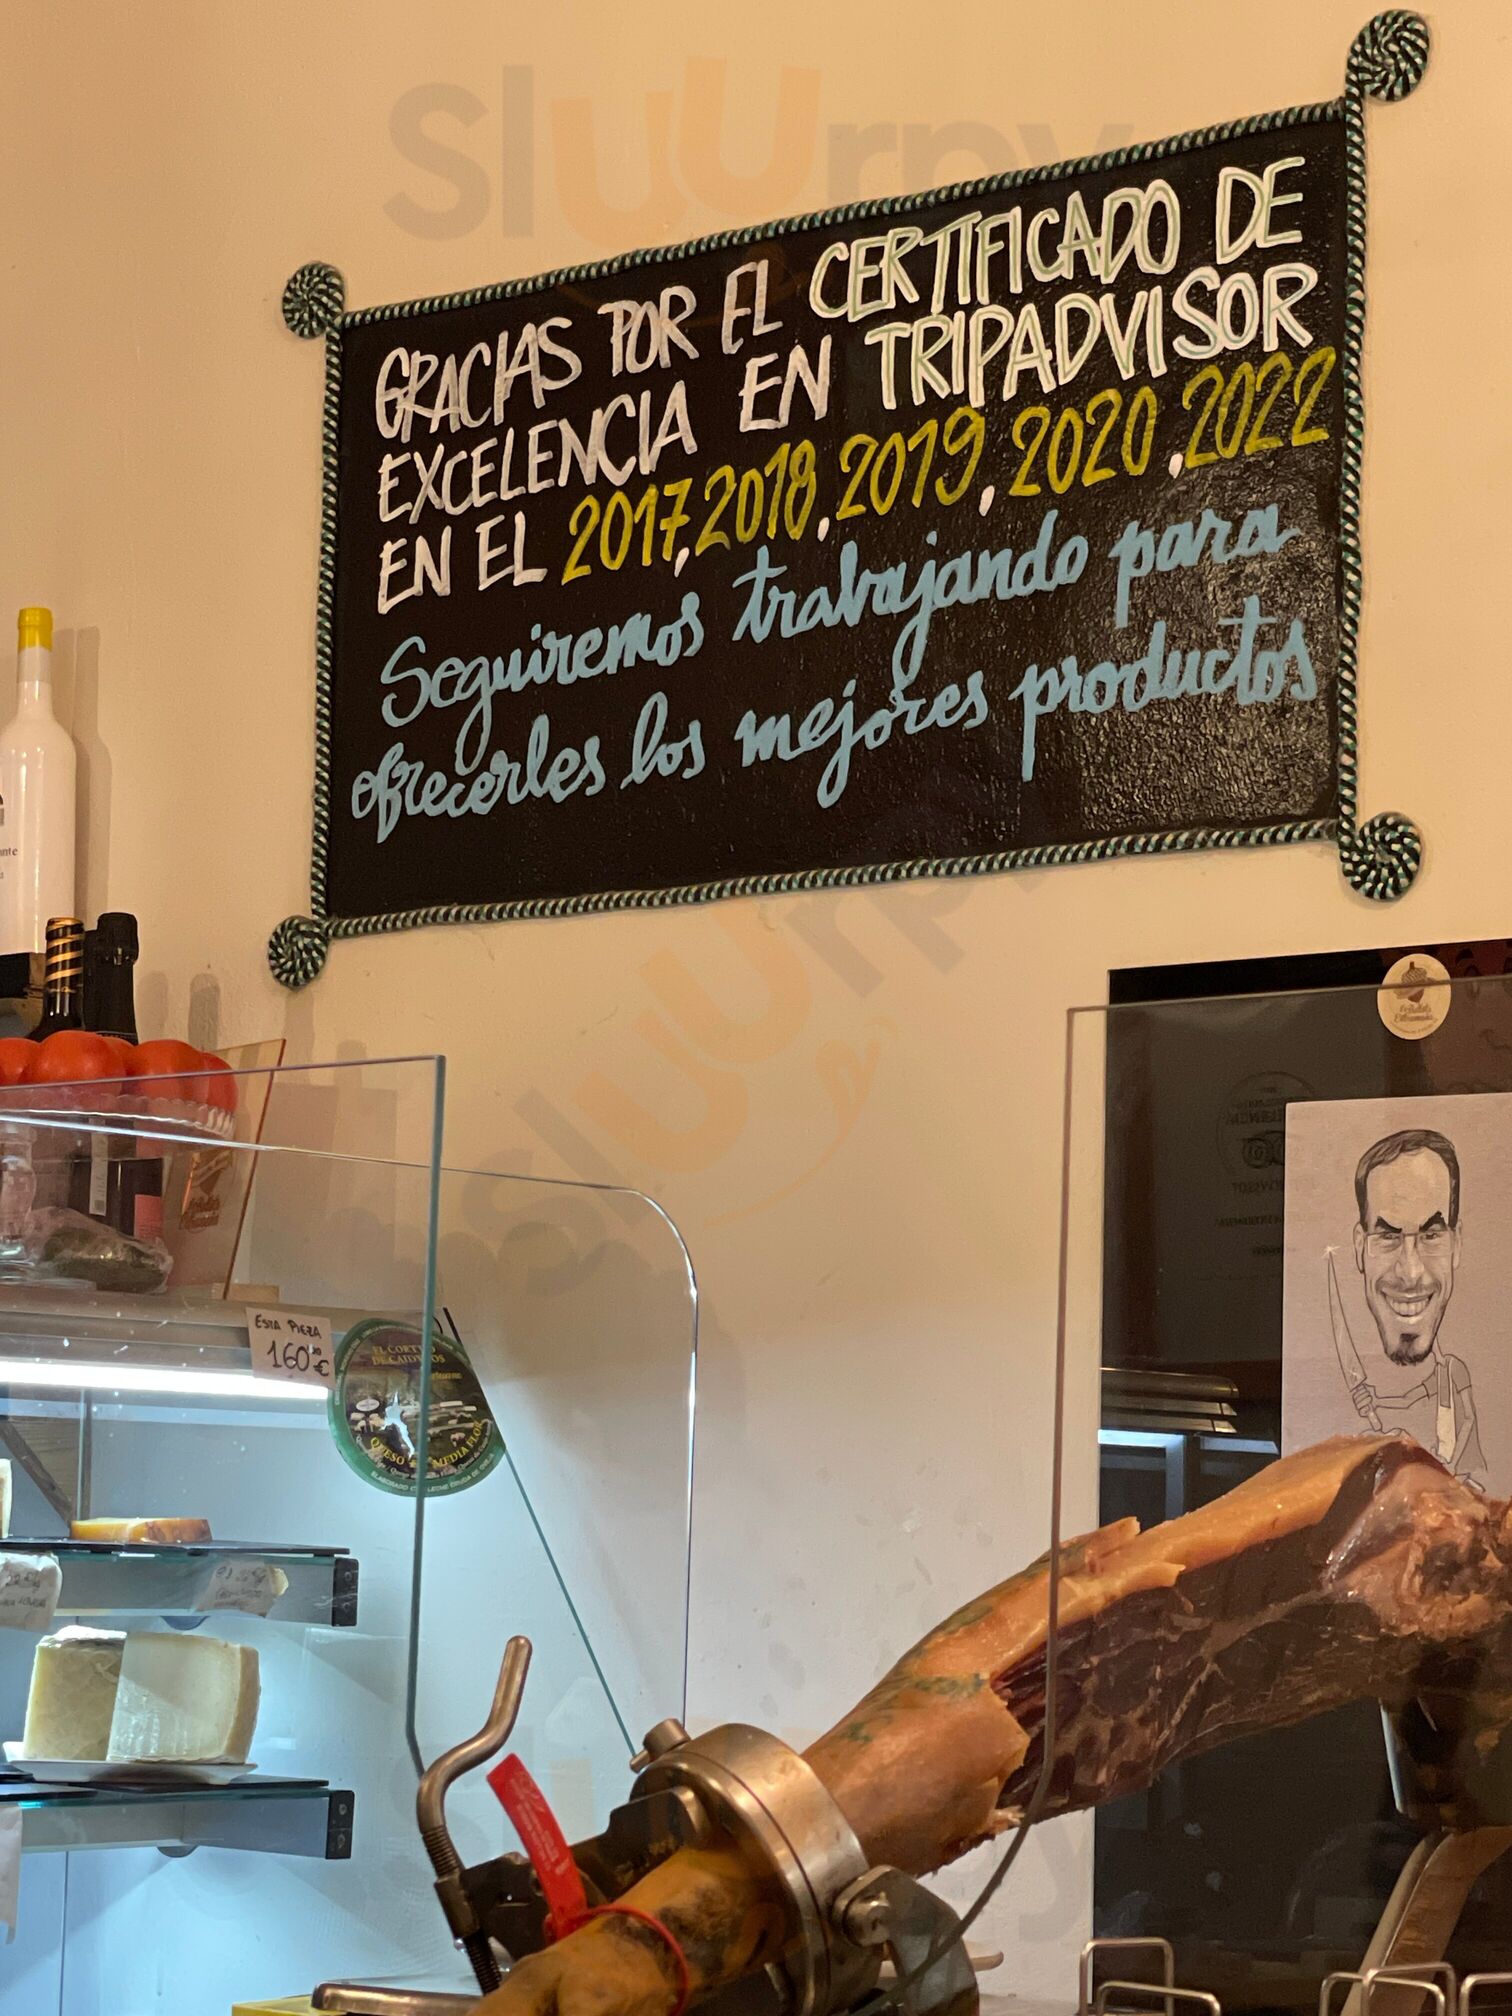 Sluurpy
GRACIAS POR EL CERTIFICADO DE
EXCELENCIA EN TRIPADVISOR
EN EL 2017, 2018, 2019, 2020, 2022
Seguiremos trabajando para
ofrecerles los mejores productos
Sluurpy
ESTA PIEZA
160 €
EL CORTIJO
DE CAIDEROS
QUESO MEDIA FLOR